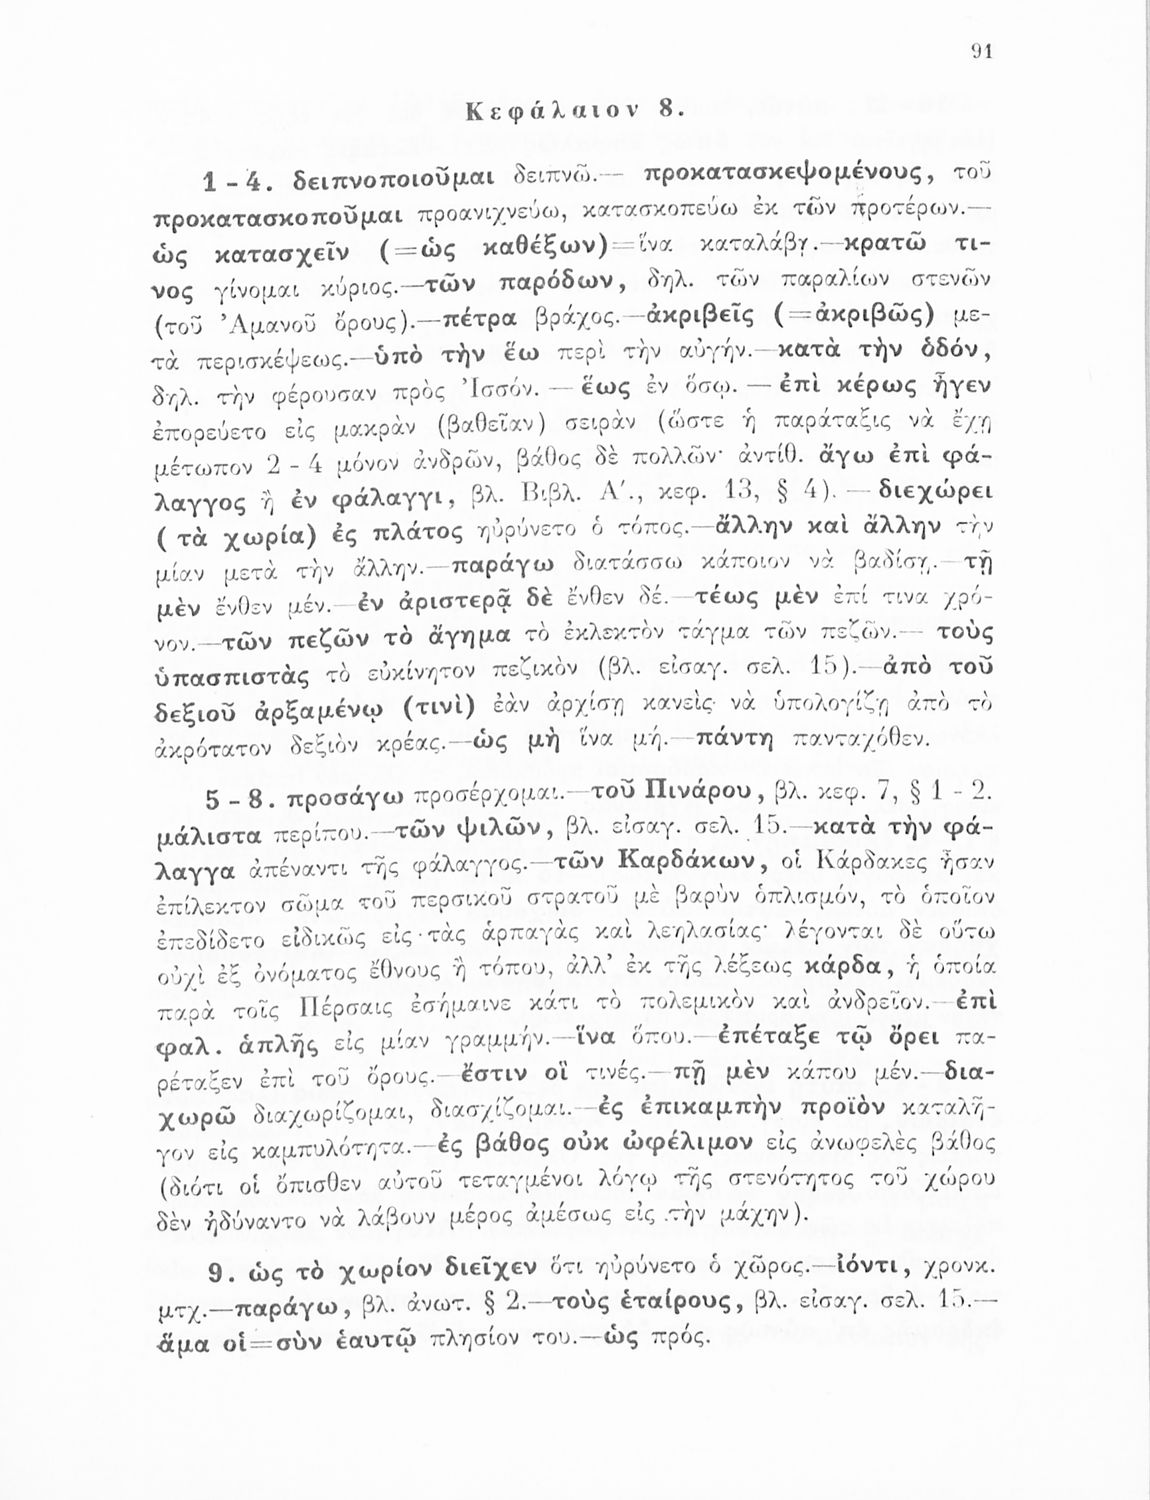 91
Κεφάλαιον 8.
1 - 4. δειπνοποιοῦμαι δειπνῶ.— προκατασκεψομένους, τοῦ
προκατασκοποῦμαι προανιχνεύω, κατασκοπεύω ἐκ τῶν προτέρων.—
ὡς κατασχεῖν (=ὡς καθέξων)=ἵνα καταλάβῃ.—κρατῶ τι-
νος γίνομαι κύριος.—τῶν παρόδων, δηλ. τῶν παραλίων στενῶν
(τοῦ Ἀμανοῦ ὄρους).—πέτρα βράχος.—ἀκριβεῖς (=ἀκριβῶς) με-
τὰ περισκέψεως.—ὑπὸ τὴν ἕω περὶ τὴν αὐγήν.—κατὰ τὴν ὁδόν,
δηλ. τὴν φέρουσαν πρὸς Ἰσσόν. — ἕως ἐν ὅσῳ. — ἐπὶ κέρως ἦγεν
ἐπορεύετο εἰς μακρὰν (βαθεῖαν) σειρὰν (ὥστε ἡ παράταξις νὰ ἔχῃ
μέτωπον 2 - 4 μόνον ἀνδρῶν, βάθος δὲ πολλῶν· ἀντίθ. ἄγω ἐπὶ φά-
λαγγος ἢ ἐν φάλαγγι, βλ. Βιβλ. Α΄., κεφ. 13, § 4). — διεχώρει
( τὰ χωρία) ἐς πλάτος ηὐρύνετο ὁ τόπος.—ἄλλην καὶ ἄλλην τὴν
μίαν μετὰ τὴν ἄλλην.—παράγω διατάσσω κάποιον νὰ βαδίσῃ.—τῇ
μὲν ἔνθεν μέν.—ἐν ἀριστερᾷ δὲ ἔνθεν δέ.—τέως μὲν ἐπί τινα χρό-
νον.—τῶν πεζῶν τὸ ἄγημα τὸ ἐκλεκτὸν τάγμα τῶν πεζῶν.— τοὺς
ὑπασπιστὰς τὸ εὐκίνητον πεζικὸν (βλ. εἰσαγ. σελ. 15).—ἀπὸ τοῦ
δεξιοῦ ἀρξαμένῳ (τινὶ) ἐὰν ἀρχίσῃ κανεὶς νὰ ὑπολογίζῃ ἀπὸ τὸ
ἀκρότατον δεξιὸν κρέας.—ὡς μὴ ἵνα μή.—πάντη πανταχόθεν.
5 - 8. προσάγω προσέρχομαι.—τοῦ Πινάρου, βλ. κεφ. 7, § 1 - 2.
μάλιστα περίπου.—τῶν ψιλῶν, βλ. εἰσαγ. σελ. 15.—κατὰ τὴν φά-
λαγγα ἀπέναντι τῆς φάλαγγος.—τῶν Καρδάκων, οἱ Κάρδακες ἦσαν
ἐπίλεκτον σῶμα τοῦ περσικοῦ στρατοῦ μὲ βαρὺν ὁπλισμόν, τὸ ὁποῖον
ἐπεδίδετο εἰδικῶς εἰς τὰς ἁρπαγὰς καὶ λεηλασίας· λέγονται δὲ οὕτω
οὐχὶ ἐξ ὀνόματος ἔθνους ἢ τόπου, ἀλλ’ ἐκ τῆς λέξεως κάρδα, ἡ ὁποία
παρὰ τοῖς Πέρσαις ἐσήμαινε κάτι τὸ πολεμικὸν καὶ ἀνδρεῖον.—ἐπὶ
φαλ. ἁπλῆς εἰς μίαν γραμμήν.—ἵνα ὅπου.—ἐπέταξε τῷ ὄρει πα-
ρέταξεν ἐπὶ τοῦ ὄρους.—ἔστιν οἳ τινές.—πῇ μὲν κάπου μέν.—δια-
χωρῶ διαχωρίζομαι, διασχίζομαι.—ἐς ἐπικαμπὴν προϊὸν καταλῆ-
γον εἰς καμπυλότητα.—ἐς βάθος οὐκ ὠφέλιμον εἰς ἀνωφελὲς βάθος
(διότι οἱ ὄπισθεν αὐτοῦ τεταγμένοι λόγῳ τῆς στενότητος τοῦ χώρου
δὲν ἠδύναντο νὰ λάβουν μέρος ἀμέσως εἰς τὴν μάχην).
9. ὡς τὸ χωρίον διεῖχεν ὅτι ηὐρύνετο ὁ χῶρος.—ἰόντι, χρονκ.
μτχ.—παράγω, βλ. ἀνωτ. § 2.—τοὺς ἑταίρους, βλ. εἰσαγ. σελ. 15.—
ἅμα οἷ=σὺν ἑαυτῷ πλησίον του.—ὡς πρός.